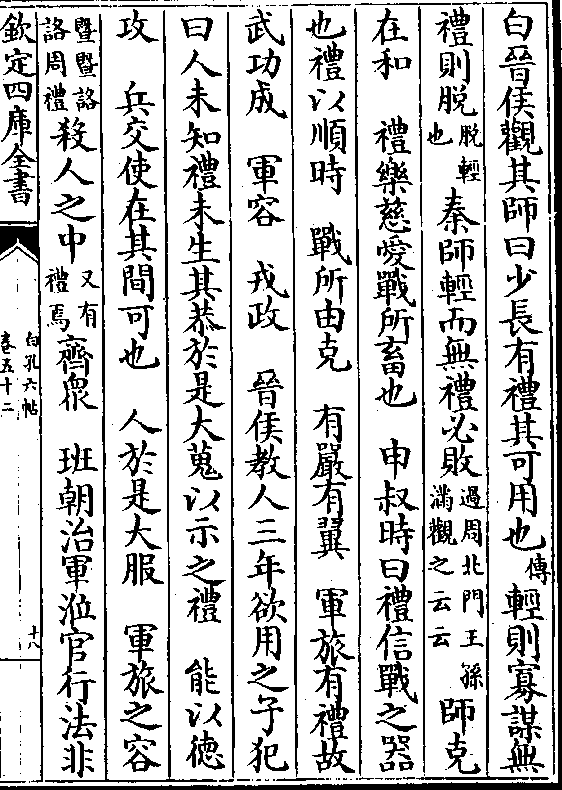 白晉侯觀其師曰少長有禮其可用也傳 輕則寡謀無
禮則脱脱輕也 秦師輕而無禮必敗過周北門王孫滿觀之云云 師克
在和 禮樂慈愛戰所畜也 申叔時曰禮信戰之器
也禮以順時 戰所由克 有嚴有翼 軍旅有禮故
武功成 軍容 戎政 晉侯教人三年欲用之子犯
曰人未知禮未生其恭於是大蒐以示之禮 能以徳
攻 兵交使在其間可也 人於是大服 軍旅之容
暨暨詻詻周禮 殺人之中又有禮焉 齊衆 班朝治軍涖官行法非
欽定四庫全書
白孔六帖
卷五十二
十八